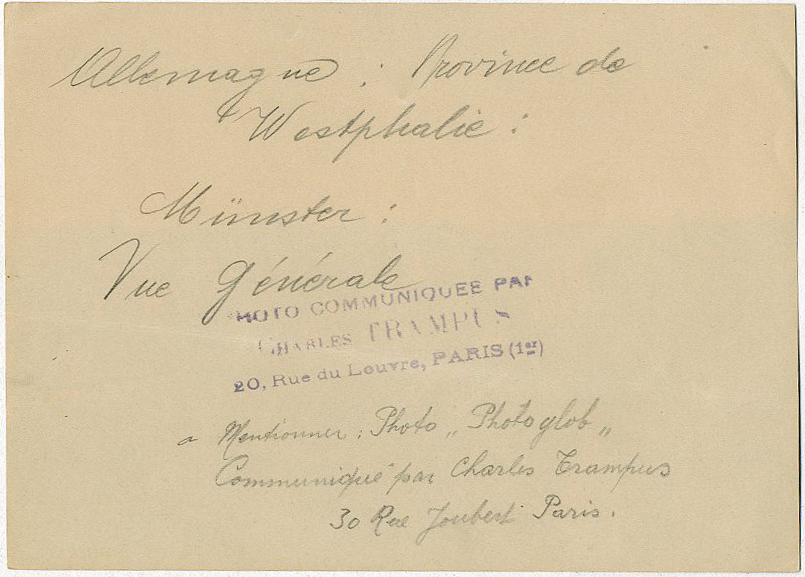 Allemagne : Province de
Westphalie :
Münster :
Vue Générale
PHOTO COMMUNIQUEE PAR
CHARLES TRAMPUS
20, Rue du Louvre, PARIS (1er)
a Mentionner : Photo „ Photoglob „
Communiqué par Charles Trampus
30 Rue Joubert Paris.